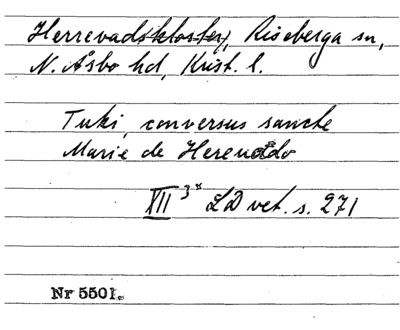 Herrevadskloster, Riseberga sn,
N. Åsbo hd, Krist. l.
Tuki, conversus sancte
Marie de Herevado
XII 3 LD vet. s. 271
Nr 5501.